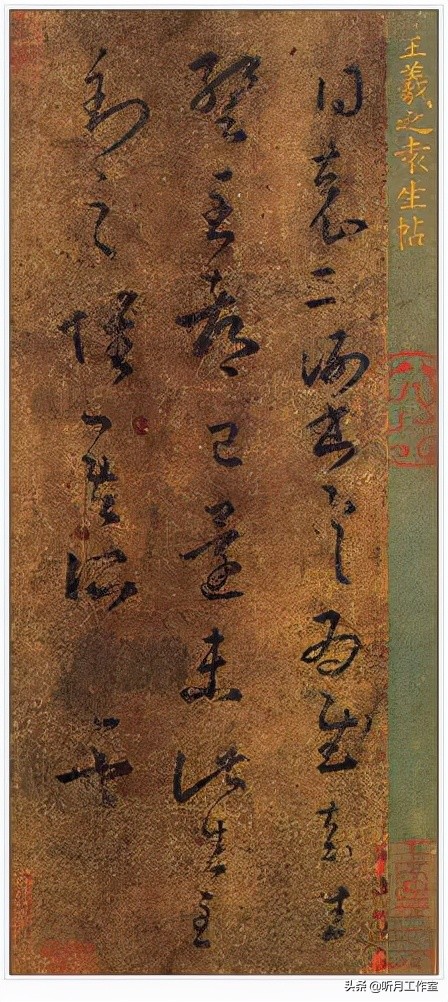 王羲之袁生帖
得袁二謝書具為慰袁生
暫至都已還未此生至
到之懷吾所盡也
头条 @听月工作室